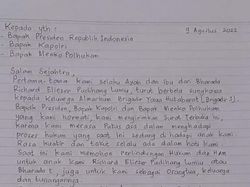 Kepada yth :
9 Agustus 2022
- Bapak Presiden Republik Indonesia
- Bapak Kapolri
- Bapak Menko Polhukam
Salam Sejahtera,
Pertama-tama kami selaku Ayah dan ibu dari Bharada
Richard Eliezer Pudihang Lumiu, turut berduka
kepada Keluarga Almarhum Brigadir Yosua Hutabarat (Brigadir J).
Bapak Presiden, Bapak Kapolri dan Bapak Menko Polhukam
yang kami hormati, kami mengirimkan Surat Terbuka ini,
karena kami merasa Putus asa dalam menghadapi
proses hukum yang saat ini sedang dihadapi anak kami
Rasa kuatir dan takut selalu ada dalam hati kami
Saat ini kami memohon Perlindungan Hukum
untuk anak kami Richard Eliezer Pudihang Lumiu atau
Bharada E, juga untuk kami sebagai Orangtua, keluarga
dan tunangannya.